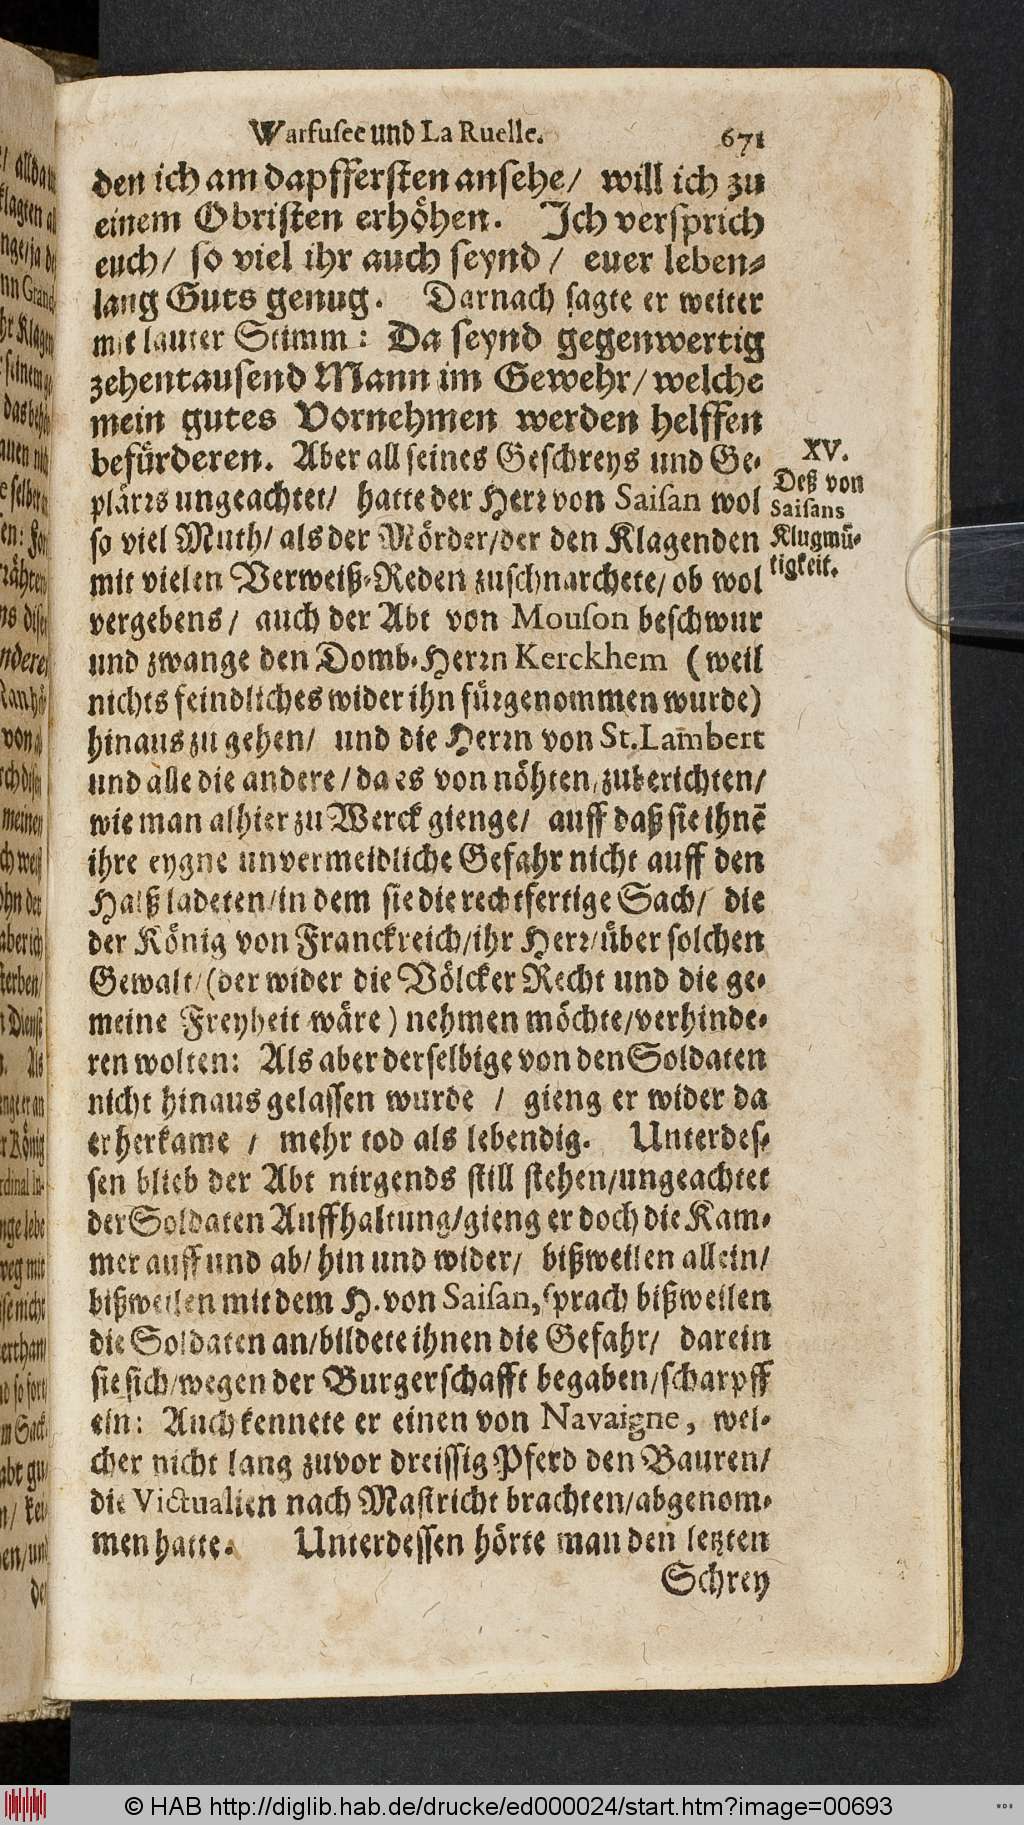 Warfusee und La Ruelle. 671
den ich am dapffersten ansehe/ will ich zu
einem Obristen erhöhen. Ich versprich
euch/ so viel ihr auch seynd/ euer leben-
lang Guts genug. Darnach sagte er weiter
mit lauter Stimm: Da seynd gegenwertig
zehentausend Mann im Gewehr/ welche
mein gutes Vornehmen werden helffen
befürderen. Aber all seines Geschreys und Ge-
plärrs ungeachtet/ hatte der Herr von Saisan wol
so viel Muth/ als der Mörder/ der den Klagenden
mit vielen Verweiß-Reden zuschnarchete/ ob wol
vergebens/ auch der Abt von Mouson beschwur
und zwange den Domb-Herrn Kerckhem (weil
nichts feindliches wider ihn fürgenommen wurde)
hinaus zu gehen/ und die Herrn von St. Lam̃bert
und alle die andere/ da es von nöhten/ zuberichten/
wie man alhier zu Werck gienge/ auff daß sie ihnẽ
ihre eygne unvermeidliche Gefahr nicht auff den
Halß ladeten/ in dem sie die rechtfertige Sach/ die
der König von Franckreich/ ihr Herr/ über solchen
Gewalt/ (der wider die Völcker Recht und die ge-
meine Freyheit wäre) nehmen möchte/ verhinde-
ren wolten: Als aber derselbige von den Soldaten
nicht hinaus gelassen wurde / gieng er wider da
er herkame / mehr tod als lebendig. Unterdes-
sen blieb der Abt nirgends still stehen/ ungeachtet
der Soldaten Auffhaltung/ gieng er doch die Kam-
mer auff und ab/ hin und wider/ bißweilen allein/
bißweilen mit dem H. von Saisan, sprach bißweilen
die Soldaten an/ bildete ihnen die Gefahr/ darein
sie sich/ wegen der Burgerschafft begaben/ scharpff
ein: Auch kennete er einen von Navaigne, wel-
cher nicht lang zuvor dreissig Pferd den Bauren/
die Victualien nach Mastricht brachten/ abgenom-
men hatte. Unterdessen hörte man den letzten
Schrey
XV.
Deß von
Saisans
Klugmü-
tigkeit.
© HAB http://diglib.hab.de/drucke/ed000024/start.htm?image=00693